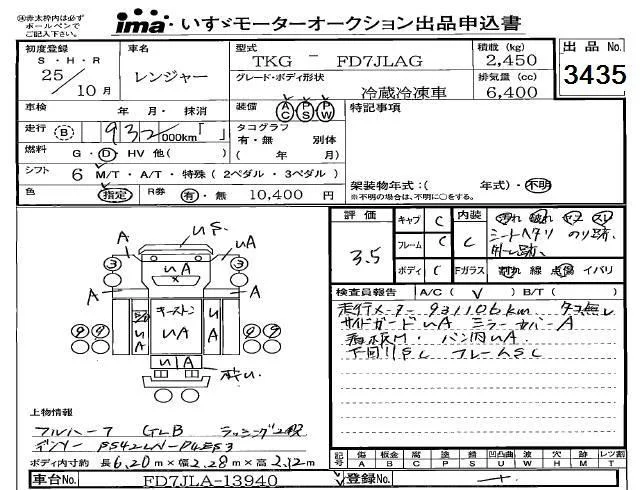 ④赤太枠内は必ず
ボールペンで
ご記入下さい。
ima・いすゞモーターオークション出品申込書
初度登録
S・H・R
25/10月
車名
レンジャー
型式
TKG － FD7JLAG
グレード・ボディ形状
冷蔵冷凍車
積載 (kg)
2,450
排気量 (cc)
6,400
出品No.
3435
車検 年 月・抹消
装備 AC PS PW
特記事項
走行 B 932,000km「 」
タコグラフ
有・無 別体
( 年 月)
燃料 G・D・HV 他( )
シフト 6 M/T・A/T・特殊 (2ペダル・3ペダル)
架装物年式:( 年式)・不明
※不明の場合は、不明に○をする。
色 指定 R券 有・無 10,400 円
評価 3.5
キャブ C
フレーム C
ボディ C
内装 C
汚れ 破れ ヤブ スレ
シートヘタリ のり跡、
外し跡、
Fガラス 割れ 線 点傷 イバリ
検査員報告 A/C( ✓ ) B/T( )
走行メーター931106km タコ無し
サイドガードUA ミラーカバーA
看板M・バン内UA
下回りSC フレームSC
US
A
UA
UA
③
③
A
A
キーストン
UA
UA
UA
UA
上物情報
フルハーフ GLB ラッシング2段
デンソー
ボディ内寸約 長6.20m×幅2.28m×高2.12m
記号
傷 板金 腐 塗 錆 凹凸曲 波 穴 ハゲ レツ割
A B C P S U W H M T
車台No. FD7JLA-13940
登録No.